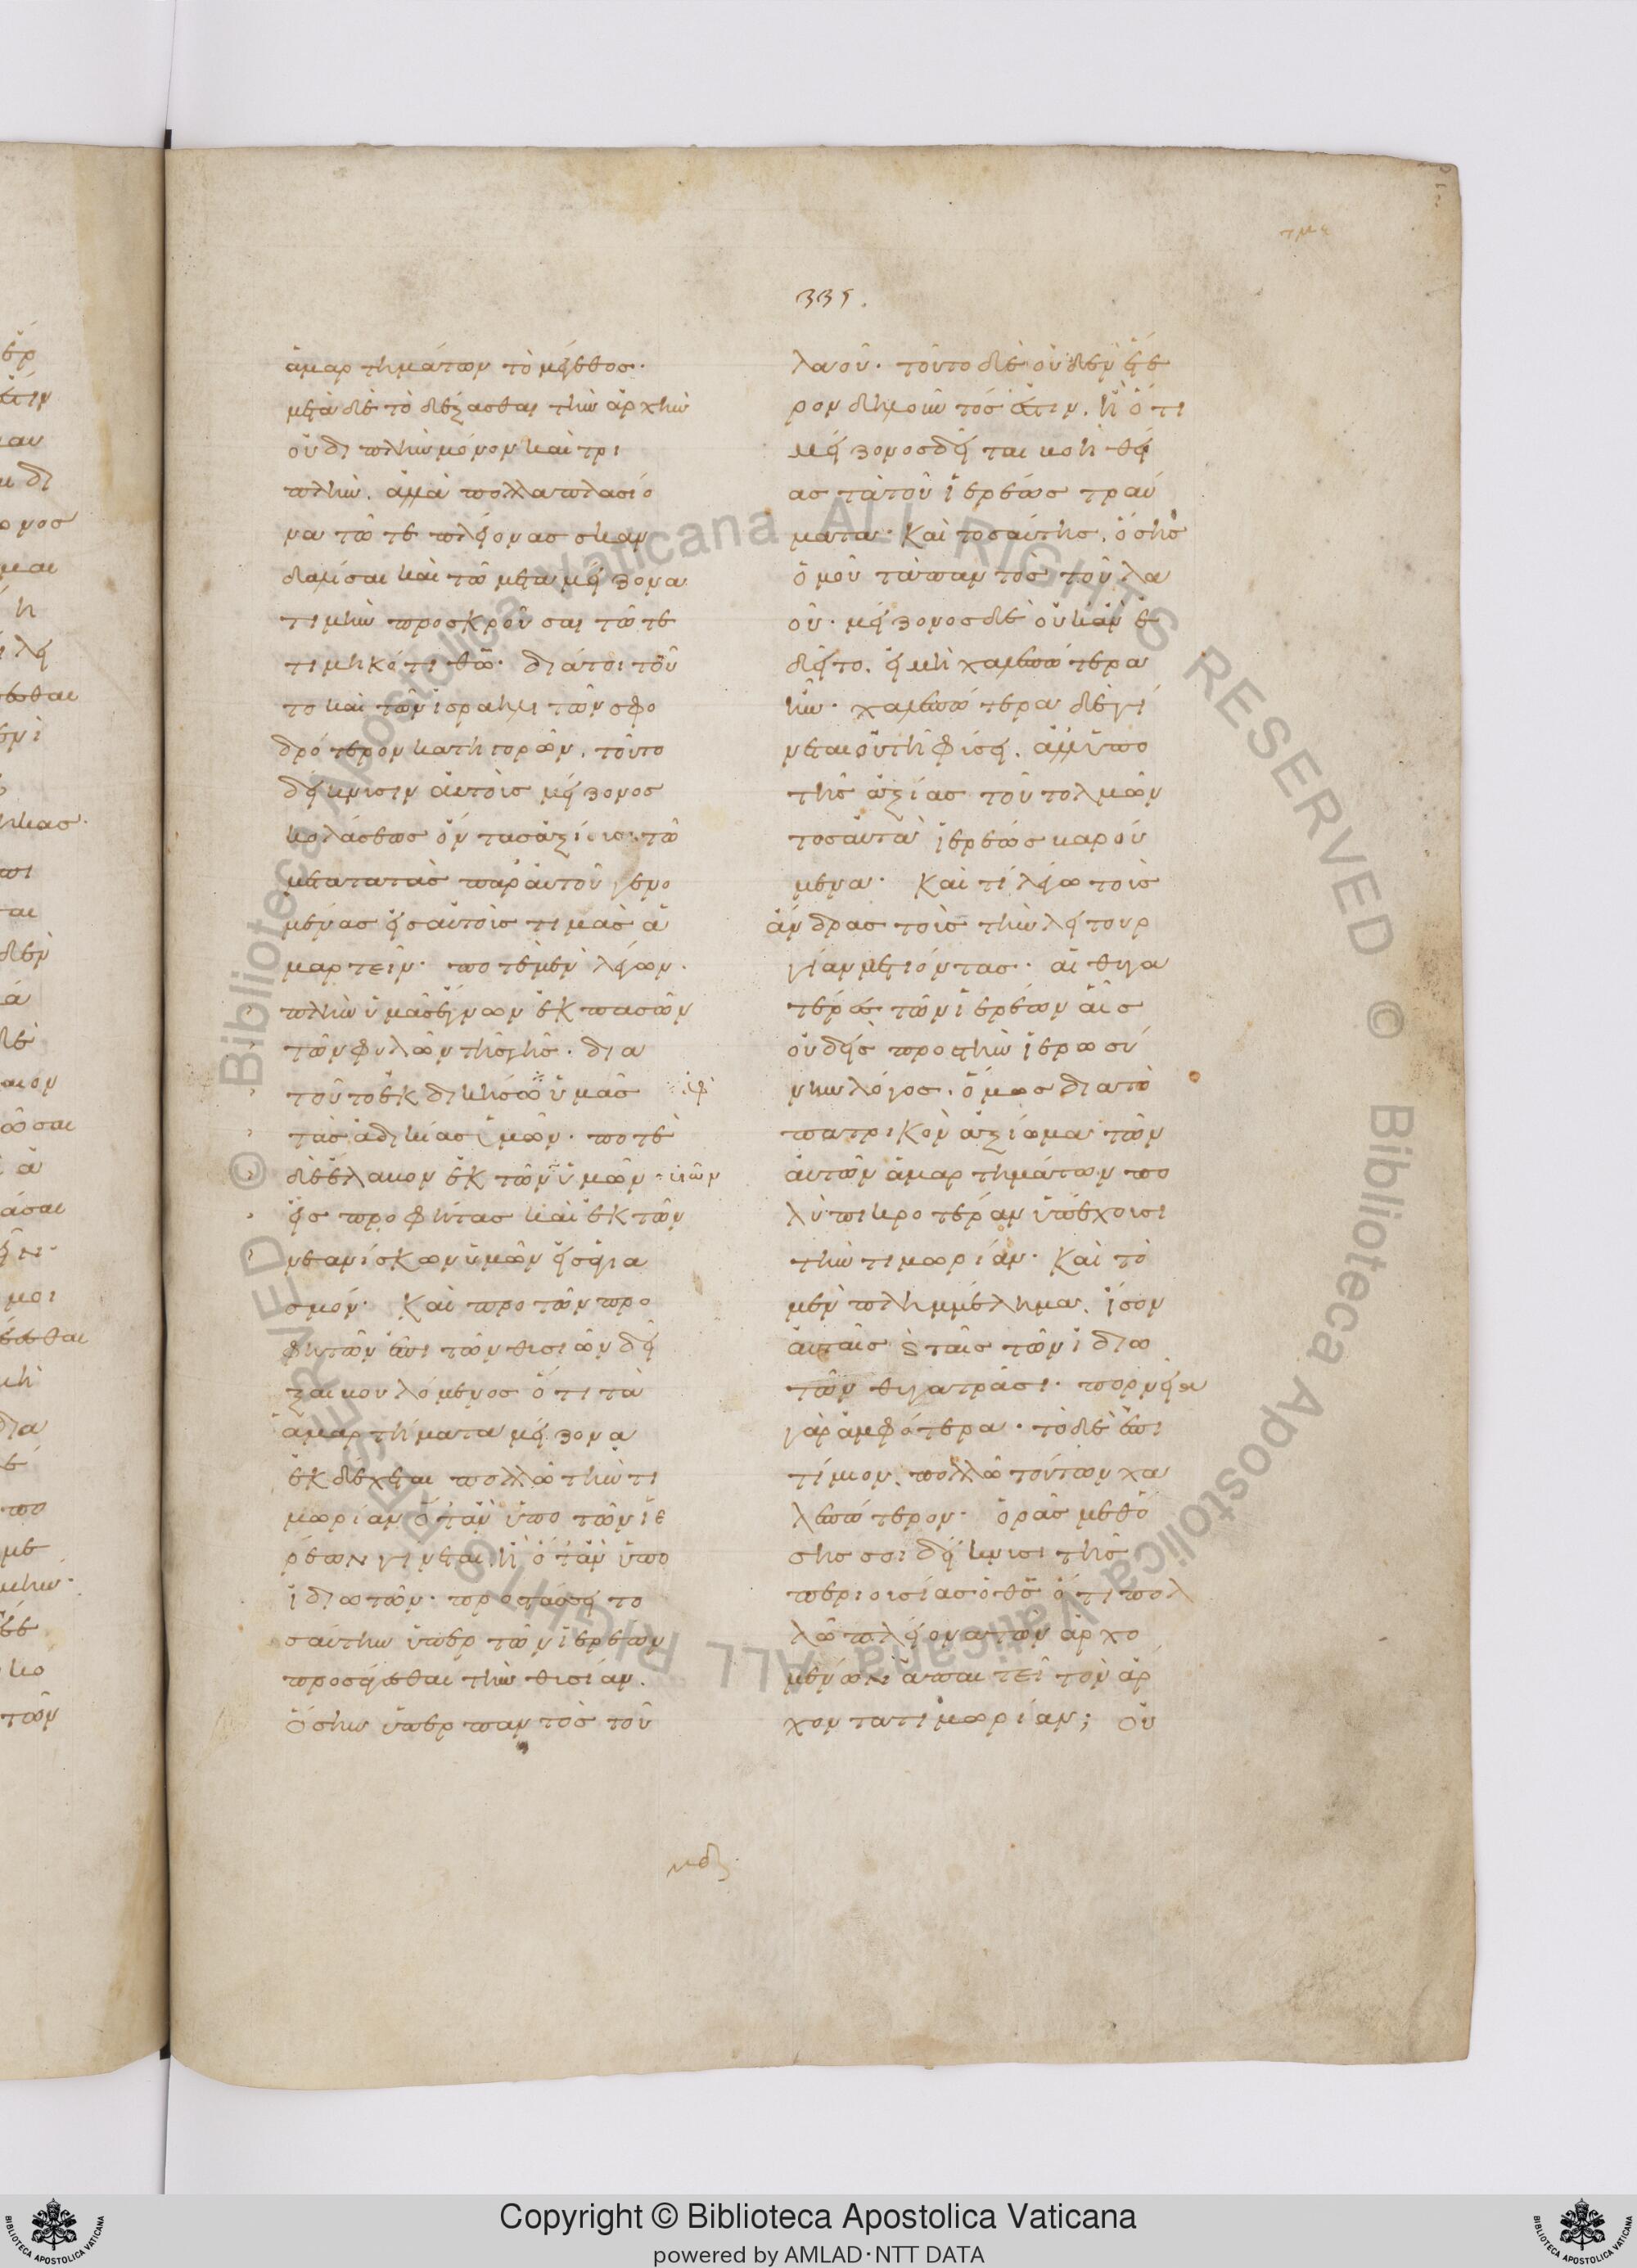 τμε
335.
ἁμαρτημάτων τὸ μέγεθος·
μετὰ δὲ τὸ δέξασθαι τὴν ἀρχὴν
οὐ διπλὴν μόνον καὶ τρι
πλὴν. ἀλλὰ πολλαπλασίο
να τῶ τε πλείονας σκαν
δαλίσαι καὶ τῶ μετὰ μείζονα
τιμὴν προσκροῦσαι τῶ τε
τιμηκότι θῶ· διάτοι τοῦ
το καὶ τῶν ἰσραηλιτῶν σφο
δρότερον κατηγορῶν, τοῦτο
δείκνυσιν αὐτοὺς μείζονος
κολάσεως ὄντας ἀξίους τῶ
μετὰ τὰς παρ αὐτοῦ γενο
μένας εἰς αὐτοὺς τιμὰς ἁ
μαρτεῖν· ποτὲ μὲν λέγων·
πλὴν ὑμᾶς ἔγνων ἐκ πασῶν
τῶν φυλῶν τῆς γῆς· δια
τοῦτο ἐκδικήσω ὑμᾶς ἐφ
τὰς ἀδικίας ὑμῶν· ποτὲ
δὲ ἔλαβον ἐκ τῶν ὑμῶν υἱῶν
εἰς προφήτας καὶ ἐκ τῶν
νεανίσκων ὑμῶν εἰς ἁγια
σμόν· Καὶ προ τῶν προ
φητῶν ἐπι τῶν θυσιῶν δεῖ
ξαι βουλόμενος ὅτι τὰ
ἁμαρτήματα μείζονα
ἐκδέχεται πολλῶ τὴν τι
μωρίαν ὅταν ὑπο τῶν ἱε
ρέων γίνεται, ἢ ὅταν ὑπο
ἰδιωτῶν· προστάσσει το
σαύτην ὑπερ τῶν ἱερέων
προσάγεσθαι τὴν θυσίαν.
ὅσην ὑπερ παντὸς τοῦ
λαοῦ· τοῦτο δὲ οὐδὲν ἕτε
ρον δηλοῦντός ἐστιν. ἢ ὅτι
μείζονος δεῖται βοηθεί
ας τὰ τοῦ ἱερέως τραύ
ματα· Καὶ τοσαύτης, ὅσης
ὁμοῦ τὰ παντὸς τοῦ λα
οῦ· μείζονος δὲ οὐκ ἂν ἐ
δεῖτο, εἰ μὴ χαλεπώτερα
ἦν· χαλεπώτερα δὲ γί
νεται οὐ τῆ φύσει, ἀλλ ὑπο
τῆς ἀξίας τοῦ τολμῶν
τος αὐτὰ ἱερέως βαρού
μενα· Καὶ τί λέγω τοὺς
ἄνδρας τοὺς τὴν λειτουρ
γίαν μετιόντας· αἱ θυγα
τέρες τῶν ἱερέων αἷς
οὐδεὶς προς τὴν ἱερωσύ
νην λόγος. ὅμως δια τὸ
πατρικὸν ἀξίωμα τῶν
αὐτῶν ἁμαρτημάτων πο
λὺ πικροτέραν ὑπέχουσι
τὴν τιμωρίαν· Καὶ τὸ
μὲν πλημμέλημα, ἴσον
αὐταῖς ϛ ταῖς τῶν ἰδιω
τῶν θυγατράσι· πορνεία
γὰρ ἀμφότερα· τὸ δὲ ἐπι
τίμιον, πολλῶ τούτων χα
λεπώτερον· ὁρᾶς μεθ ὅ
σης σοι δείκνυσι τῆς
περιουσίας ὁ θς ὅτι πολ
λῶ πλείονα τῶν ἀρχο
μένων ἀπαιτεῖ τὸν ἄρ
χοντα τιμωρίαν; Οὐ
Copyright © Biblioteca Apostolica Vaticana
powered by AMLAD·NTT DATA